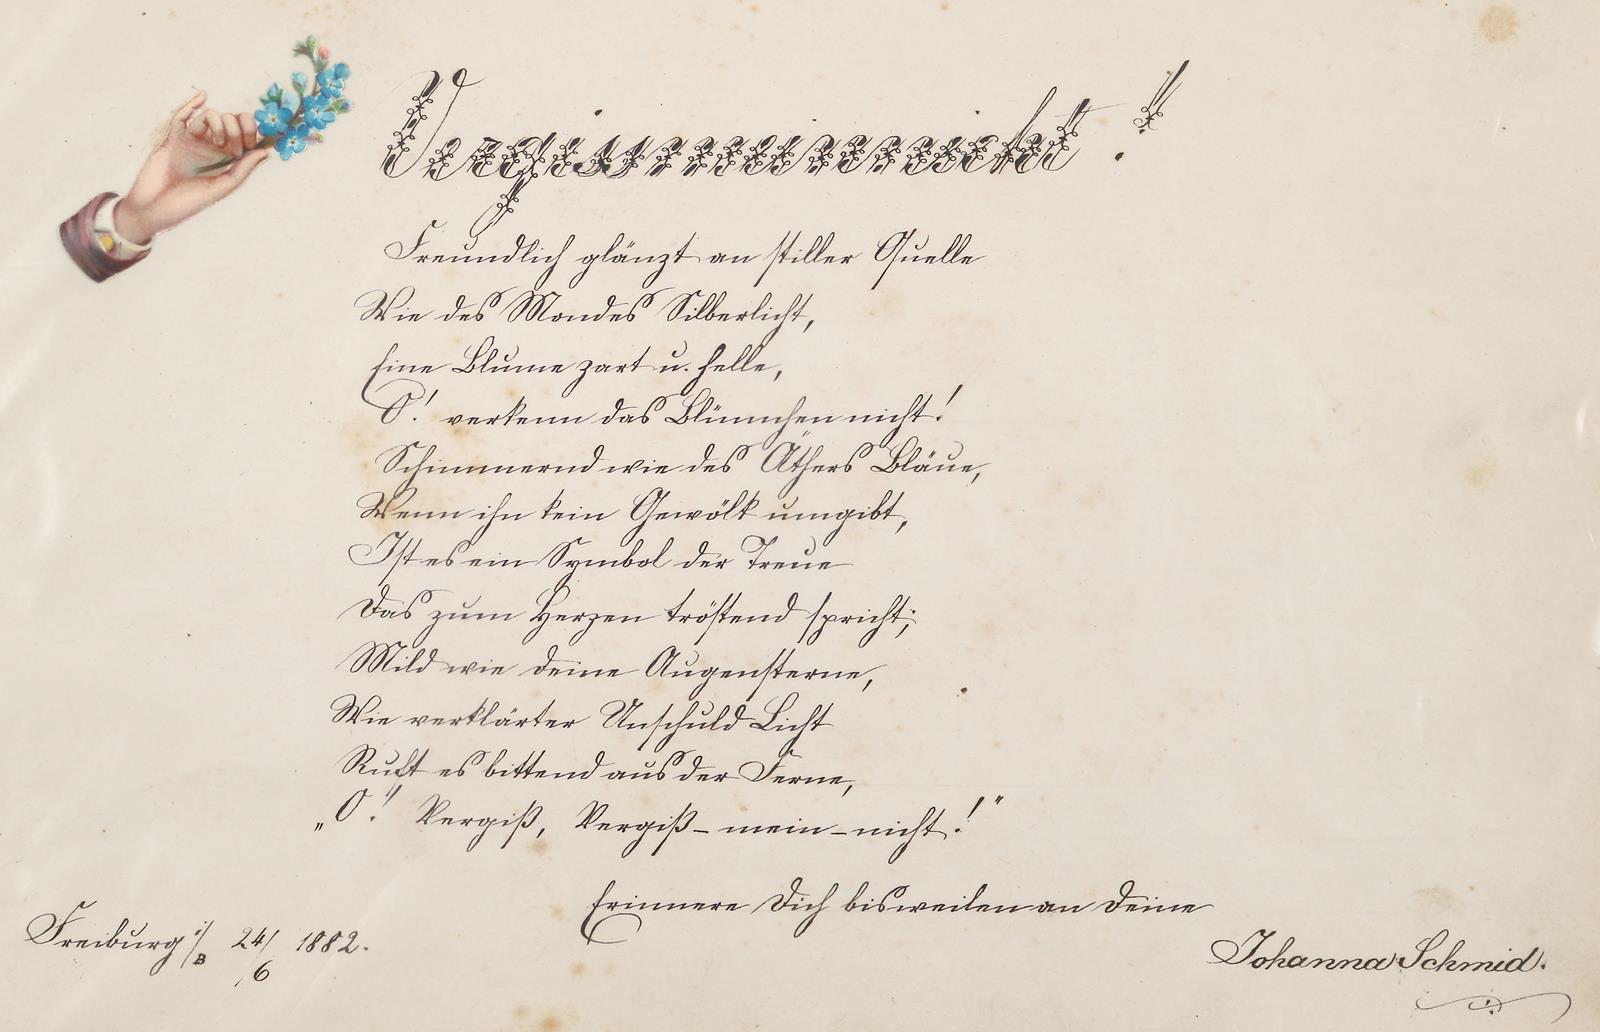 Vergissmeinnicht!
Freundlich glänzt an stiller Quelle
Wie des Mondes Silberlicht,
Eine Blume zart u. helle,
O! verkenn das Blümchen nicht!
Schimmernd wie des Äthers Bläue,
Wenn ihn kein Gewölk umgibt,
Ist es ein Symbol der Treue
Das zum Herzen tröstend spricht;
Mild wie deine Augensterne,
Wie verklärter Unschuld Licht
Ruft es bittend aus der Ferne,
„O! Vergiß, Vergiß-mein-nicht!"
Erinnere Dich bisweilen an Deine
Johanna Schmid.
Freiburg i/B 24/6 1882.